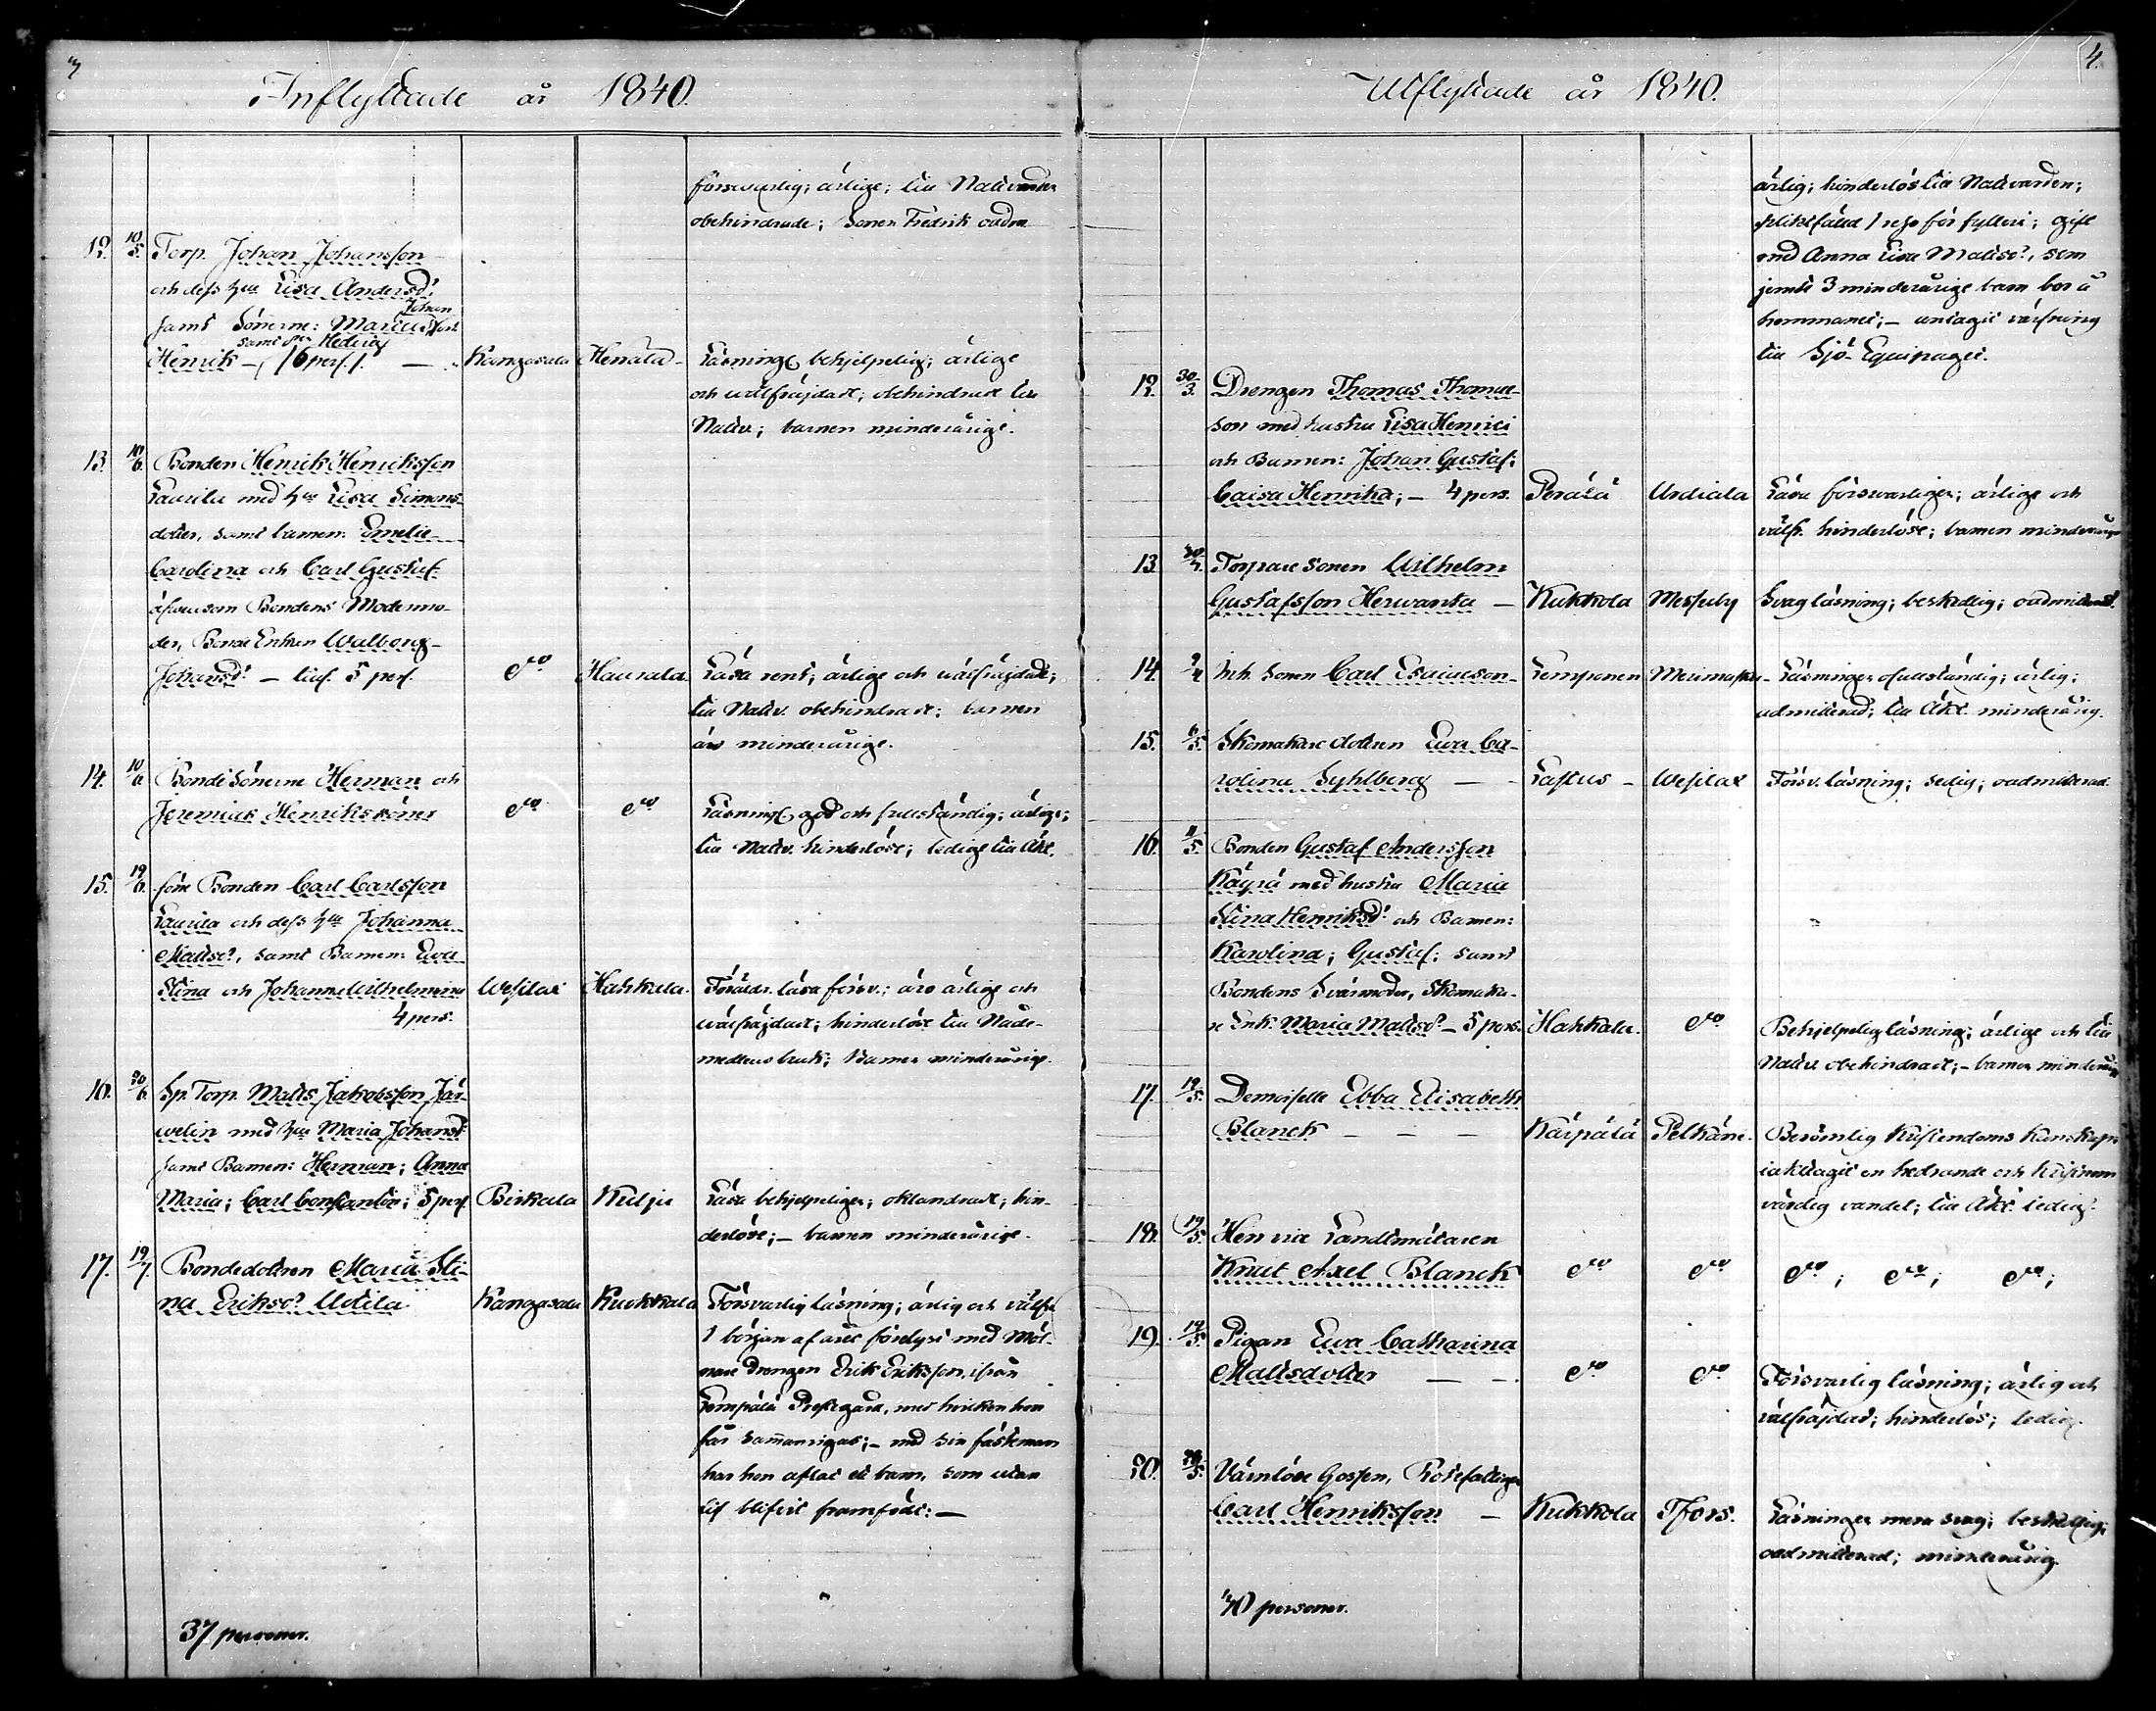 3
Inflyttade år 1840.
försvarlig; ärlige; till Nattvarden
obehindrade; Sonen Fredrik oadm
12. 10/5. Torp. Johan Johansson
och dess hu Lisa Andersdr
Johan
samt Sönerne:
samt Hedvig
Henrik – (6 pers.) – Kangasala Läsning behjelpelig; ärlige
och välfräjdade; obehindrade till
Nattv.; barnen minderårige.
13. 10/6. Bonden Henrik Henriksson
Laurila med hu Lisa Simons-
dotter, samt barnen: Emelie
Carolina och Carl Gustaf
äfvensom Bondens Modermo-
der, Bonde Enkan Walborg
Johansdr – tils. 5 pers. do Haurala Läsa rent; ärlige och välfräjdade;
till Nattv. obehindrade; barnen
äro minderårige.
14. 10/6 Bondesönerne Herman och
Jeremias Henrikssöner do do Läsning god och fullständig; ärlige;
till Nattv. hinderlöse; ledige till Äkt.
15. 19/6. förre Bonden Carl Carlsson
Laurila och dess hu Johanna
Mattsdr, samt Barnen: Eva
Stina och Johanna Wilhelmina Wesilax Hahkala. Föräldr. läsa försv.; äro ärlige och
4 pers. välfräjdade; hinderlöse till Nåde-
medlens bruk; Barnen minderårige.
16. 30/6 Sp. Torp. Matts Jakobsson Jär-
velin med hu Maria Johansdr
samt Barnen: Herman; Anna
Maria; Carl Constantin; 5 pers. Birkala Kulju Läsa behjelpeligen; oklandrade; hin-
derlöse; – barnen minderårige.
17. 19/7. Bondedottren Maria Sti-
na Eriksdr Uotila Kangasala Kuokkala Försvarlig läsning; ärlig och välfr.
I början af året förelyst med Möl-
nare Drengen Erik Eriksson, ifrån
Lempälä Prestgård, med hvilken hon
får sammanvigas; – med sin fästeman
har hon aflat ett barn, som utan
lif blifvit framfödt: –
37 personer.
4.
Utflyttade år 1840.
ärlig; hinderlös till Nattvarden;
pliktfälld 1 resa för fylleri; gift
med Anna Lisa Mattsdr, som
jemte 3 minderårige barn bor å
hemmanet; – antagit värfning
till Sjö-Equipaget.
12. 30/3. Drengen Thomas Thomas-
son med hustru Lisa Henrici
och Barnen: Johan Gustaf;
Caisa Henrika; – 4 pers. Perälä Urdiala Läsa försvarligen; ärlige och
välfr. hinderlöse; barnen minderårige
13. Torpare Sonen Wilhelm
Gustafsson Herwanta – Kukkola Messuby Svag läsning; beskedlig; oadmitterad.
14. 9/4 Inh. Sonen Carl Esaiasson Lemponen Läsningen ofullständig; ärlig;
admitterad; till Äkt. minderårig.
15. 6/5. Skomakare dottren Eva Ca-
rolina Syhlberg – – Lastus – Wesilax Försv. läsning; sedig; oadmitterad.
16. 11/5. Bonden Gustaf Andersson
Käyrä med hustru Maria
Stina Henriksdr och Barnen:
Karolina; Gustaf; samt
Bondens Svärmoder, Skomaka-
re Enk. Maria Mattsdr – 5 pers. Hahkala. do Behjelpelig läsning; ärlige och till
Nattv. obehindrade; – barnen minderårige
17. 19/5. Demoiselle Ebba Elisabeth
Blanck – – – Kärpälä Pelkäne. Berömlig Kristendoms kunskap;
iakttagit en hedrande och Kristnom
värdig vandel; till Äkt. ledig.
18. 19/5. Herr vice Landtmätaren
Knut Axel Blanck do do do; do; do;
19. 19/5. Pigan Eva Catharina
Mattsdotter – – do do Försvarlig läsning; ärlig och
välfräjdad; hinderlös; ledig.
20. Värnlöse Gossen, Rotefattige
Carl Henriksson – Kukkola Tfors. Läsningen mera svag; beskedlig;
oadmitterad; minderårig.
40 personer.